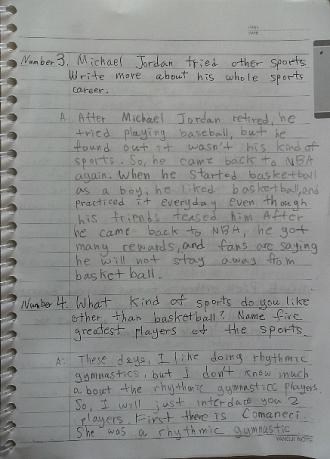 Number 3. Michael Jordan tried other sports.
Write more about his whole sports
career.
A. After Michael Jordan retired, he
tried playing baseball, but he
found out it wasn't his kind of
sports. So, he came back to NBA
again. When he started basketball
as a boy, he liked basketball, and
practiced it everyday even though
his friends teased him. After
he came back to NBA, he got
many rewards, and fans are saying
he will not stay away from
basketball.
Number 4. What kind of sports do you like
other than basketball? Name five
greatest players of the sports.
A: These days, I like doing rhythmic
gymnastics, but I don't know much
about the rhythmic gymnastics players.
So, I will just interdare you 2
players. First there is Comaneci.
She was a rhythmic gymnastic